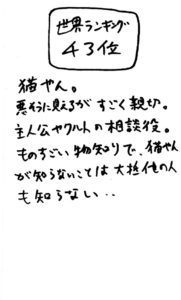 世界ランキング
43位
猫やん。
悪そうに見えるが すごく親切。
主人公ヤクルトの相談役。
ものすごい物知りで、猫やん
が知らないことは大抵他の人
も知らない‥